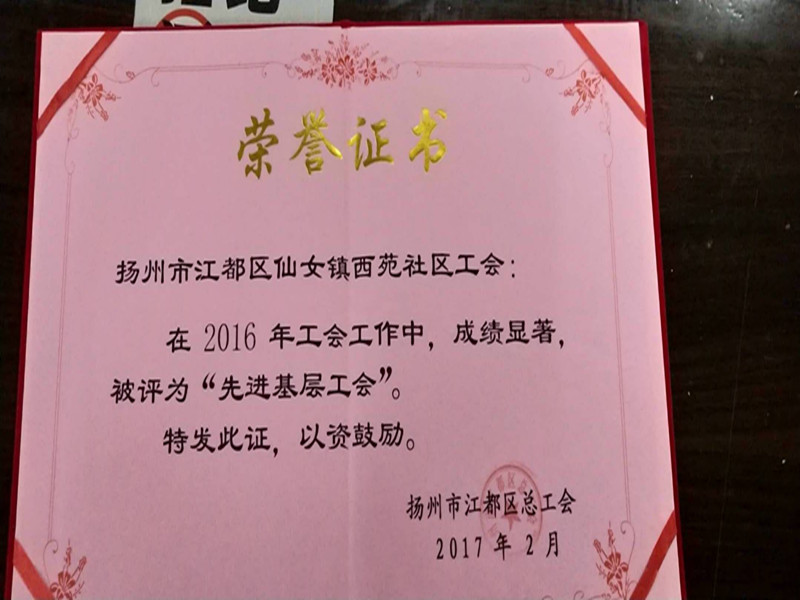 荣誉证书
扬州市江都区仙女镇西苑社区工会：
在 2016 年工会工作中，成绩显著，
被评为“先进基层工会”。
特发此证，以资鼓励。
扬州市江都区总工会
2017 年 2 月